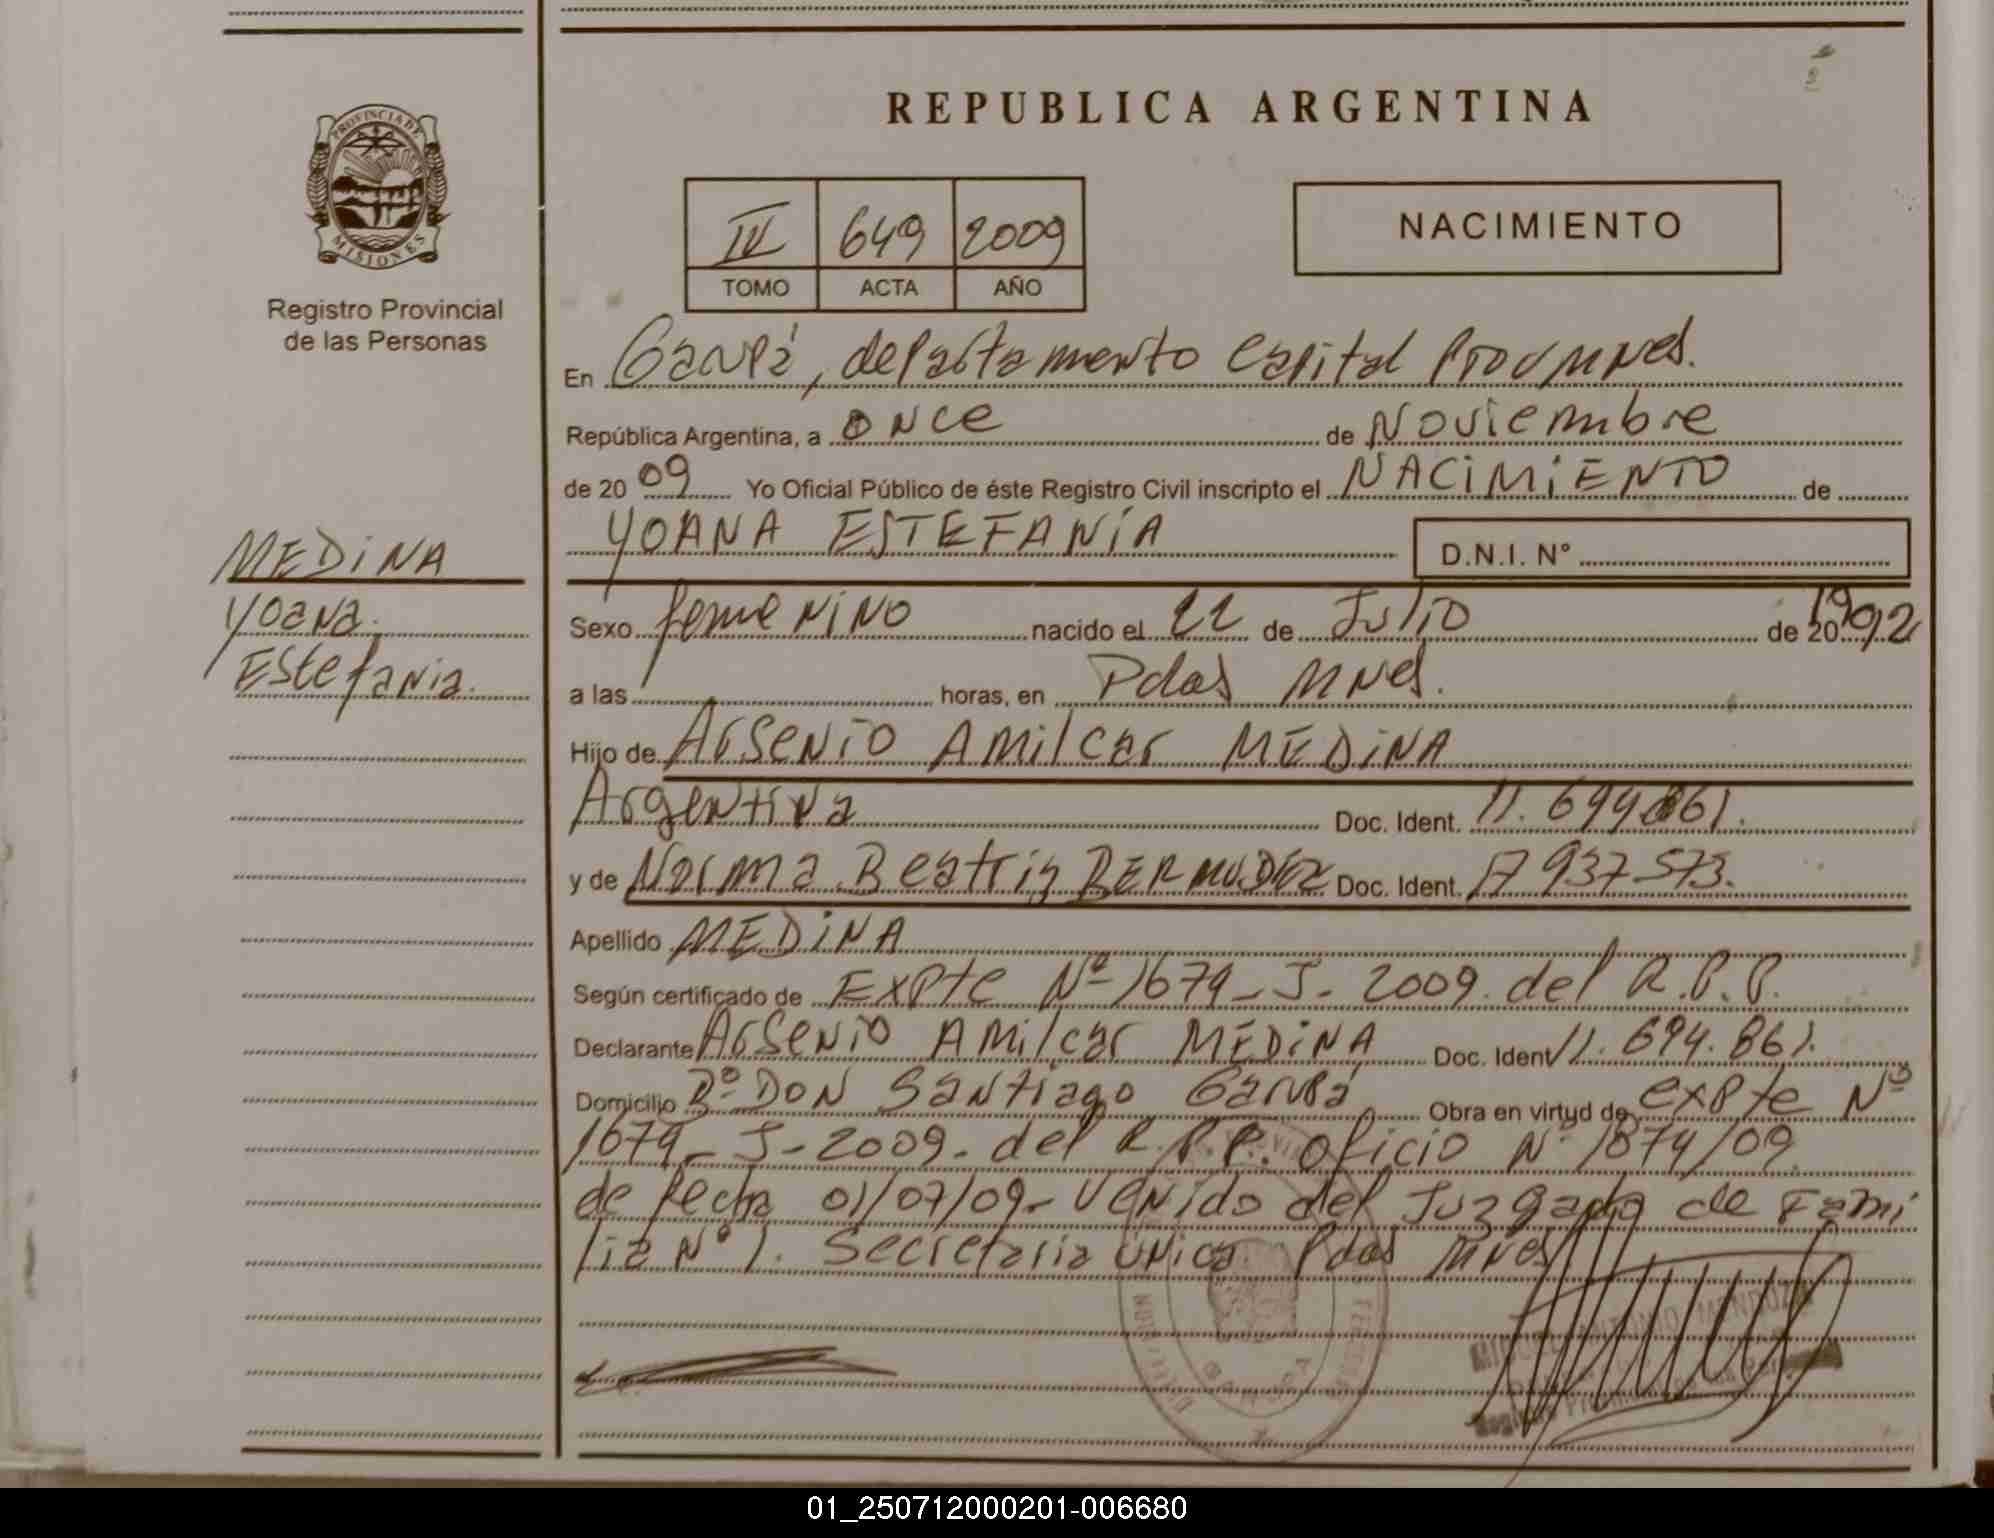 REPUBLICA ARGENTINA
PROVINCIA DE
MISIONES
Registro Provincial
de las Personas
IV 649 2009
TOMO ACTA AÑO
NACIMIENTO
En Garupá, departamento Capital Prov Mnes.
República Argentina, a once de Noviembre
de 20 09 Yo Oficial Público de éste Registro Civil inscripto el NACIMIENTO de
YOANA ESTEFANÍA
D.N.I. N°
MEDINA
Yoana
Estefania.
Sexo femenino nacido el 22 de Julio de 20 1992
a las horas, en Pdas Mnes.
Hijo de Arsenio Amilcar MEDINA
Argentina Doc. Ident. 11.694.861.
y de Norma Beatriz BERMUDEZ Doc. Ident. 17 937 573.
Apellido MEDINA
Según certificado de Expte Nº 1679-J-2009. del R.P.P.
Declarante Arsenio Amilcar MEDINA Doc. Ident 11.694.861.
Domicilio Bº DON Santiago Garupá Obra en virtud de expte Nº
1679-J-2009. del R.P.P. oficio Nº 1874/09
de fecha 01/07/09- venido del Juzgado de Fami
lia Nº 1. Secretaria única Pdas Mnes
ANTONIO MENDOZA
GARUPA
01_250712000201-006680